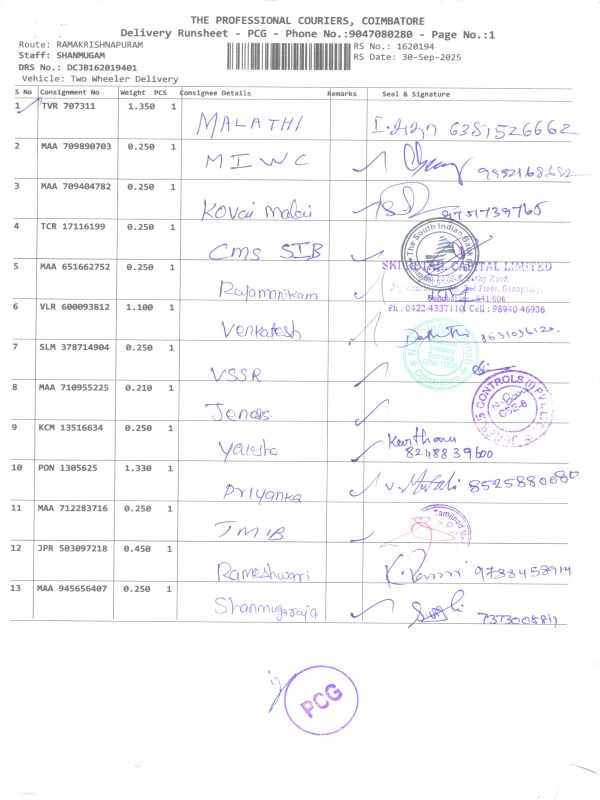 THE PROFESSIONAL COURIERS, COIMBATORE
Delivery Runsheet - PCG - Phone No.:9047080280 - Page No.:1
Route: RAMAKRISHNAPURAM RS No.: 1620194
Staff: SHANMUGAM RS Date: 30-Sep-2025
DRS No.: DCJB162019401
Vehicle: Two Wheeler Delivery
S No Consignment No Weight PCS Consignee Details Remarks Seal & Signature
1 TVR 707311 1.350 1 MALATHI 6381526662
2 MAA 709890703 0.250 1 MIWC
3 MAA 709404782 0.250 1 Kovai Malai 9751739765
4 TCR 17116199 0.250 1 CMS SIB The South Indian Bank
5 MAA 651662752 0.250 1 Rajamanikam CAPITAL LIMITED
Floor, Ganapathy
641 006
Ph. 0422-4337110, Cell : 98940 46936
6 VLR 600093812 1.100 1 Venkatesh
Coimbatore
7 SLM 378714904 0.250 1 VSSR
8 MAA 710955225 0.210 1 Jenoss CONTROLS (I) PVT. LTD.
CBE-6
9 KCM 13516634 0.250 1 Yalesha Keerthanu
8248839600
10 PON 1305625 1.330 1 Priyanka 8525880080
11 MAA 712283716 0.250 1 TMIB Tamilnad
12 JPR 503097218 0.450 1 Rameshwari 9738458914
13 MAA 945656407 0.250 1 Shanmugaraja 7373008811
PCG